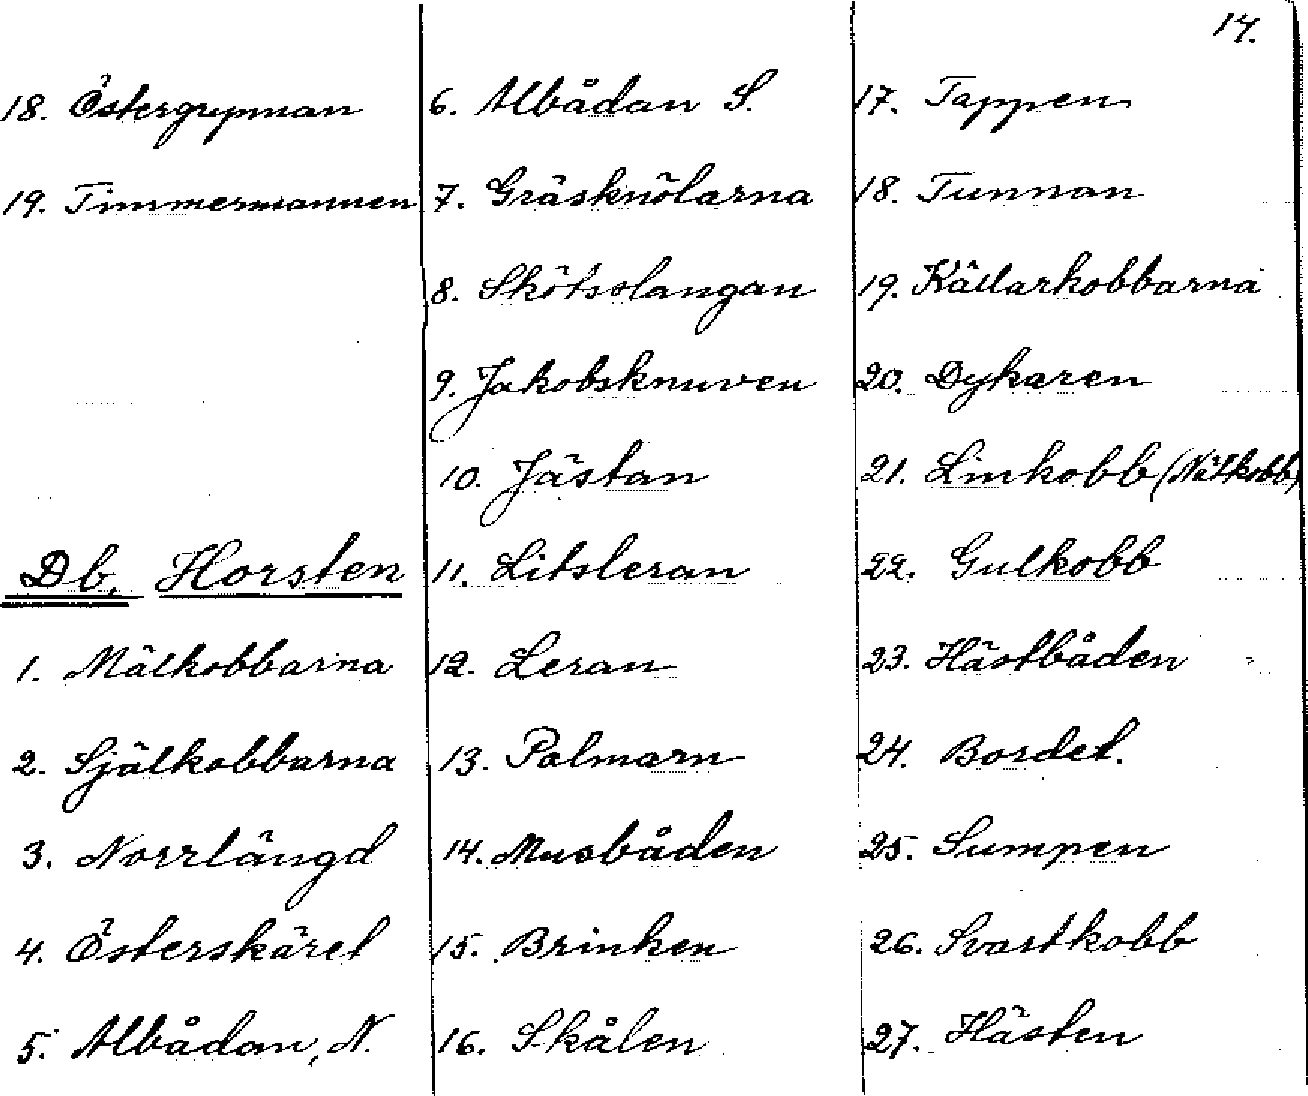 14.
18. Östergrynnan
19. Timmermannen
Db. Horsten
1. Mälkobbarna
2. Själkobbarna
3. Norrlängd
4. Österskäret
5. Albådan, N.
6. Albådan S.
7. Gräsknölarna
8. Skötsslangan
9. Jakobsknuven
10. Jästan
11. Litsleran
12. Leran
13. Palmarn
14. Musbåden
15. Brinken
16. Skålen
17. Tappen
18. Tunnan
19. Källarkobbarna
20. Dykaren
21. Linkobb (Nätkobb)
22. Gulkobb
23. Hästbåden
24. Bordet.
25. Sumpen
26. Svartkobb
27. Hästen